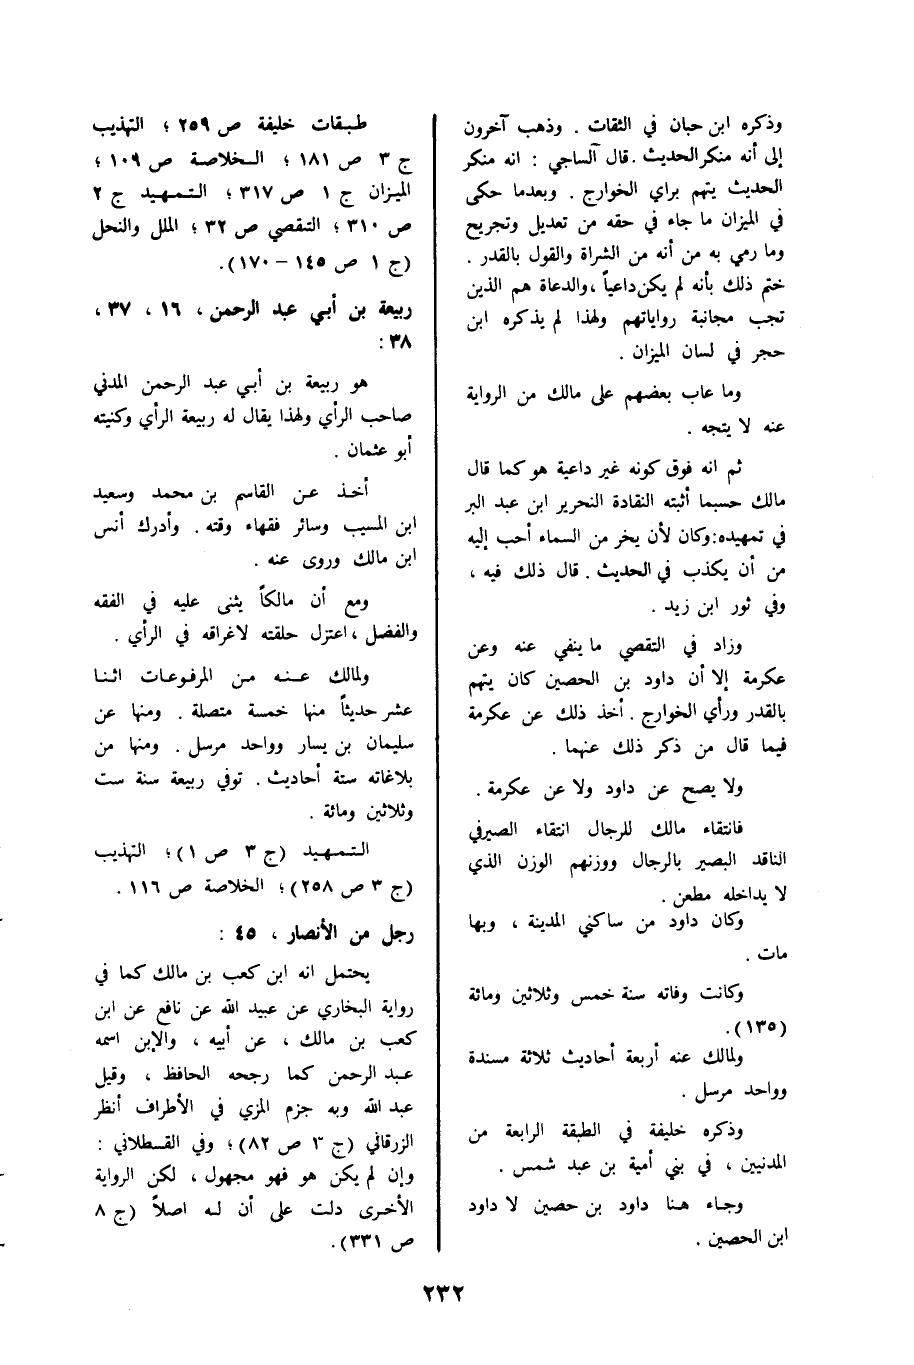 وذكره ابن حبان في الثقات . وذهب آخرون
إلى أنه منكر الحديث . قال الساجي : انه منكر
الحديث يتهم براي الخوارج . وبعدما حكى
في الميزان ما جاء في حقه من تعديل وتجريح
وما رمي به من أنه من الشراة والقول بالقدر .
ختم ذلك بأنه لم يكن داعياً ، والدعاة هم الذين
تجب مجانبة رواياتهم ولهذا لم يذكره ابن
حجر في لسان الميزان .
وما عاب بعضهم على مالك من الرواية
عنه لا يتجه .
ثم انه فوق كونه غير داعية هو كما قال
مالك حسبما أثبته النقادة النحرير ابن عبد البر
في تمهيده : وكان لأن يخر من السماء أحب إليه
من أن يكذب في الحديث . قال ذلك فيه ،
وفي ثور ابن زيد .
وزاد في التقصي ما ينفي عنه وعن
عكرمة إلا أن داود بن الحصين كان يتهم
بالقدر ورأي الخوارج . أخذ ذلك عن عكرمة
فيما قال من ذكر ذلك عنهما .
ولا يصح عن داود ولا عن عكرمة .
فانتقاء مالك للرجال انتقاء الصيرفي
الناقد البصير بالرجال ووزنهم الوزن الذي
لا يداخله مطعن .
وكان داود من ساكني المدينة ، وبها
مات .
وكانت وفاته سنة خمس وثلاثين ومائة
(١٣٥) .
ولمالك عنه أربعة أحاديث ثلاثة مسندة
وواحد مرسل .
وذكره خليفة في الطبقة الرابعة من
المدنيين ، في بني أمية بن عبد شمس .
وجاء هنا داود بن حصين لا داود
ابن الحصين .
طبقات خليفة ص ٢٥٩ ؛ التهذيب
ج ٣ ص ١٨١ ؛ الخلاصة ص ١٠٩ ؛
الميزان ج ١ ص ٣١٧ ؛ التمهيد ج ٢
ص ٣١٠ ؛ التقصي ص ٣٢ ؛ الملل والنحل
(ج ١ ص ١٤٥ – ١٧٠) .
ربيعة بن أبي عبد الرحمن ، ١٦ ، ٣٧ ،
٣٨ :
هو ربيعة بن أبي عبد الرحمن المدني
صاحب الرأي ولهذا يقال له ربيعة الرأي وكنيته
أبو عثمان .
أخذ عن القاسم بن محمد وسعيد
ابن المسيب وسائر فقهاء وقته . وأدرك أنس
ابن مالك وروى عنه .
ومع أن مالكاً يثنى عليه في الفقه
والفضل ، اعتزل حلقته لاغراقه في الرأي .
ولمالك عنه من المرفوعات اثنا
عشر حديثاً منها خمسة متصلة . ومنها عن
سليمان بن يسار وواحد مرسل . ومنها من
بلاغاته ستة أحاديث . توفي ربيعة سنة ست
وثلاثين ومائة .
التمهيد (ج ٣ ص ١) ؛ التهذيب
(ج ٣ ص ٢٥٨) ؛ الخلاصة ص ١١٦ .
رجل من الأنصار ، ٤٥ :
يحتمل انه ابن كعب بن مالك كما في
رواية البخاري عن عبيد الله عن نافع عن ابن
كعب بن مالك ، عن أبيه ، والإبن اسمه
عبد الرحمن كما رجحه الحافظ ، وقيل
عبد الله وبه جزم المزي في الأطراف أنظر
الزرقاني (ج ٣ ص ٨٢) ؛ وفي القسطلاني :
وإن لم يكن هو فهو مجهول ، لكن الرواية
الأخرى دلت على أن له اصلاً (ج ٨
ص ٣٣١) .
٢٣٢